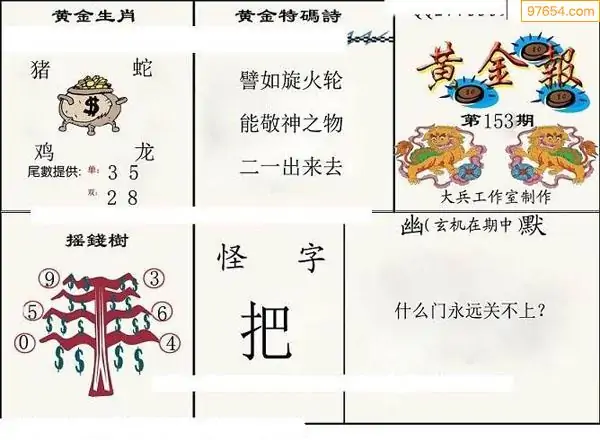 黄金生肖
猪 蛇
$
鸡 龙
尾數提供: 单: 3 5
双: 2 8
黄金特碼詩
譬如旋火轮
能敬神之物
二一出来去
97654.com
黄金報
第153期
大兵工作室制作
摇錢樹
9 3
5 6
0 4
$ $ $ $ $ $ $ $
怪 字
把
幽(玄机在期中)默
什么门永远关不上?